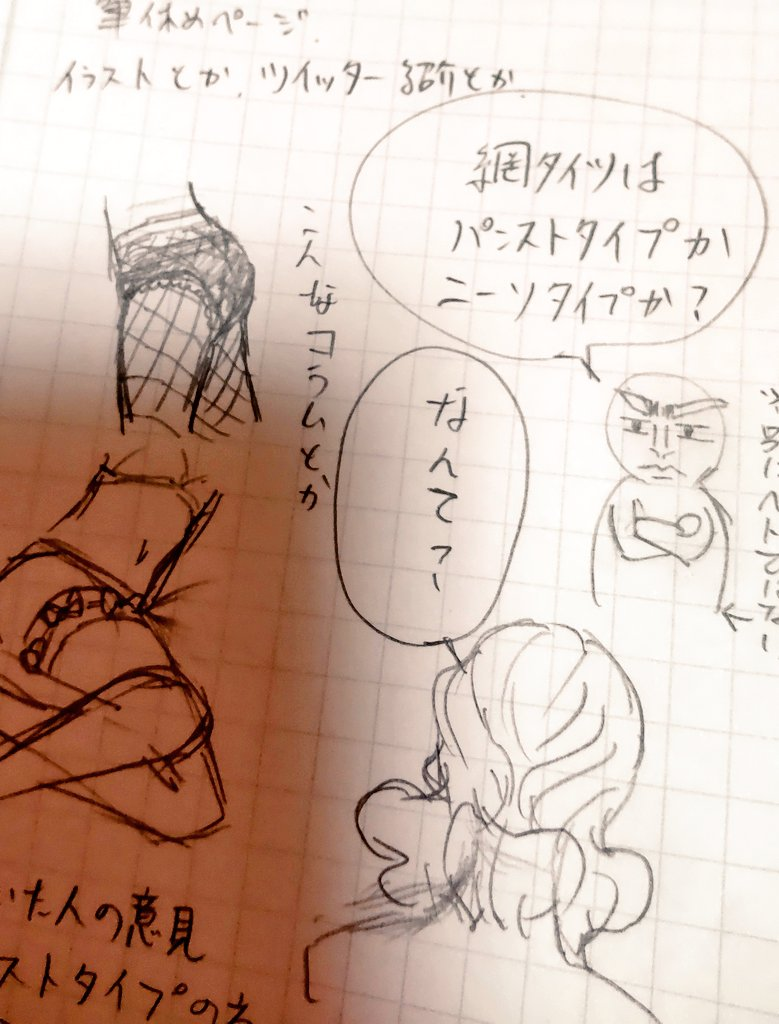 筆休めページ
イラストとか、ツイッター紹介とか
網タイツは
パンストタイプか
ニーソタイプか?
こんなコラムとか
なんてっ
いた人の意見
ストタイプの方